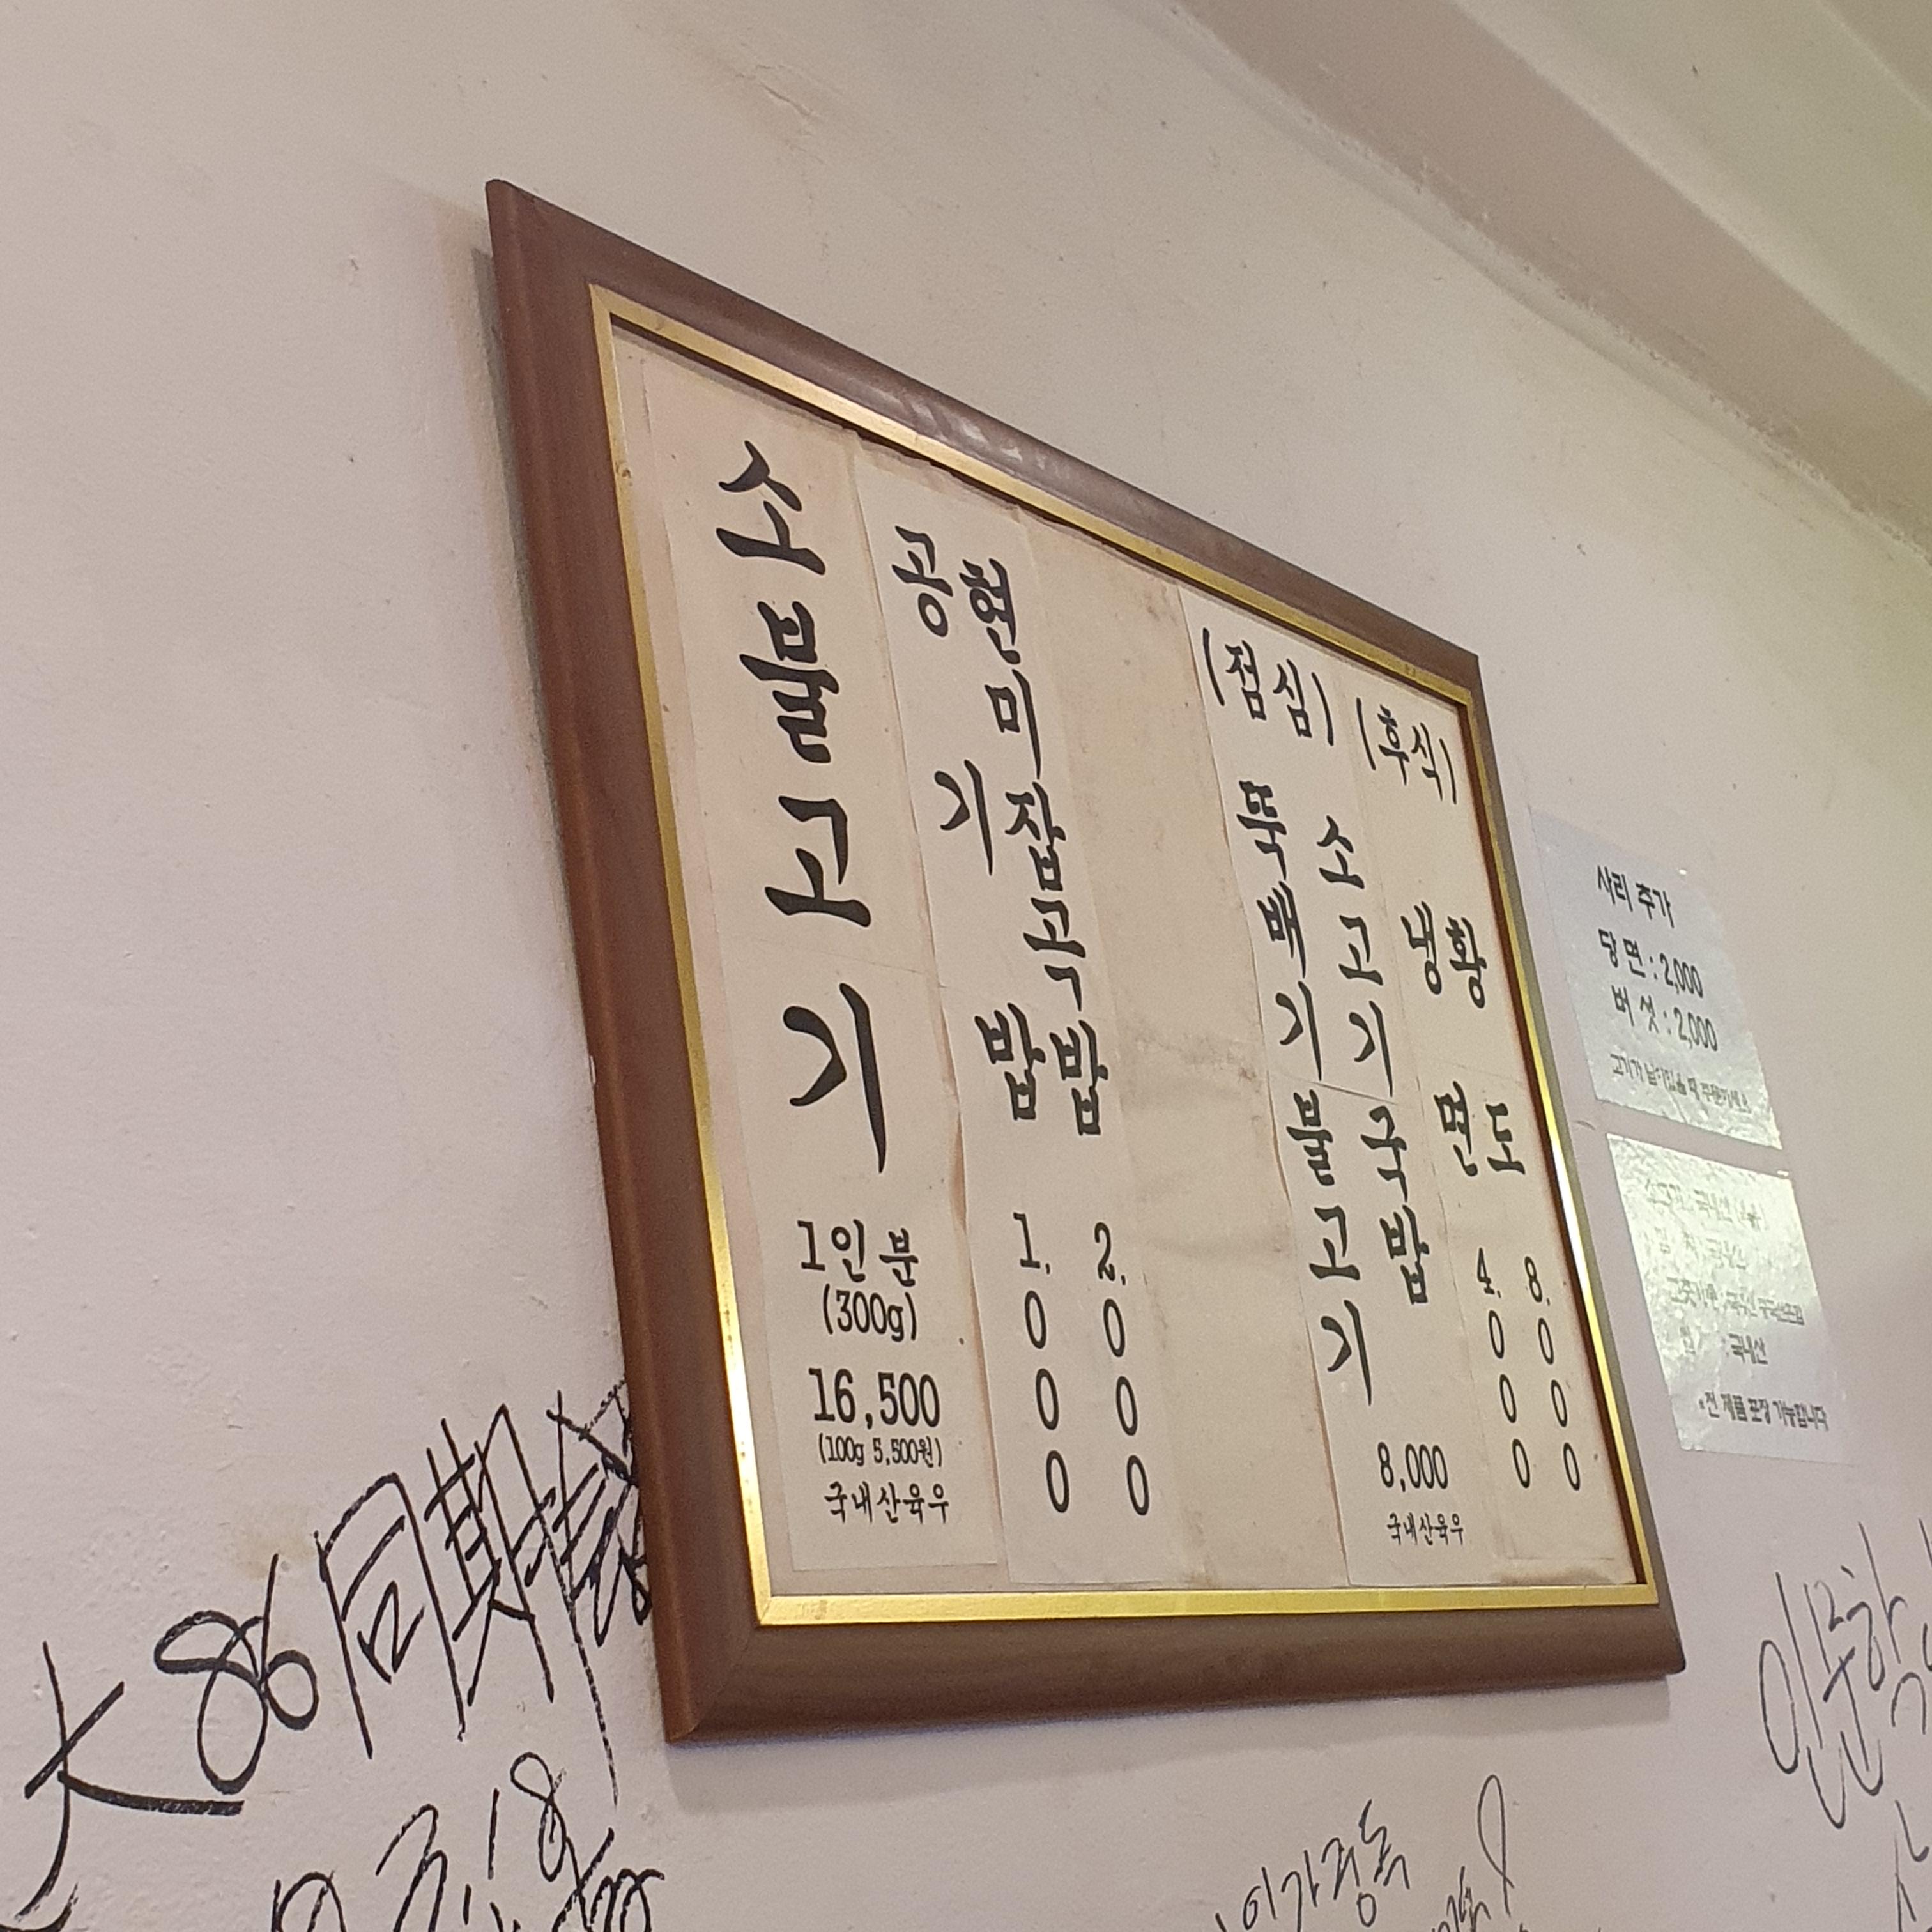 소뿔고기
1인분
(300g)
16,500
(100g 5,500원)
국내산육우
공기밥 1.000
현미잡고밥 2.000
(점심)
뚝배기불고기
소고기국밥
8,000
국내산육우
(후식)
냉면 4.000
황도 8.000
사리 추가
당면 : 2,000
버섯 : 2,000
고기가 남아있을 때 주문하세요
국내산
*전 제품 포장 가능합니다
大 86 同期会
이가경